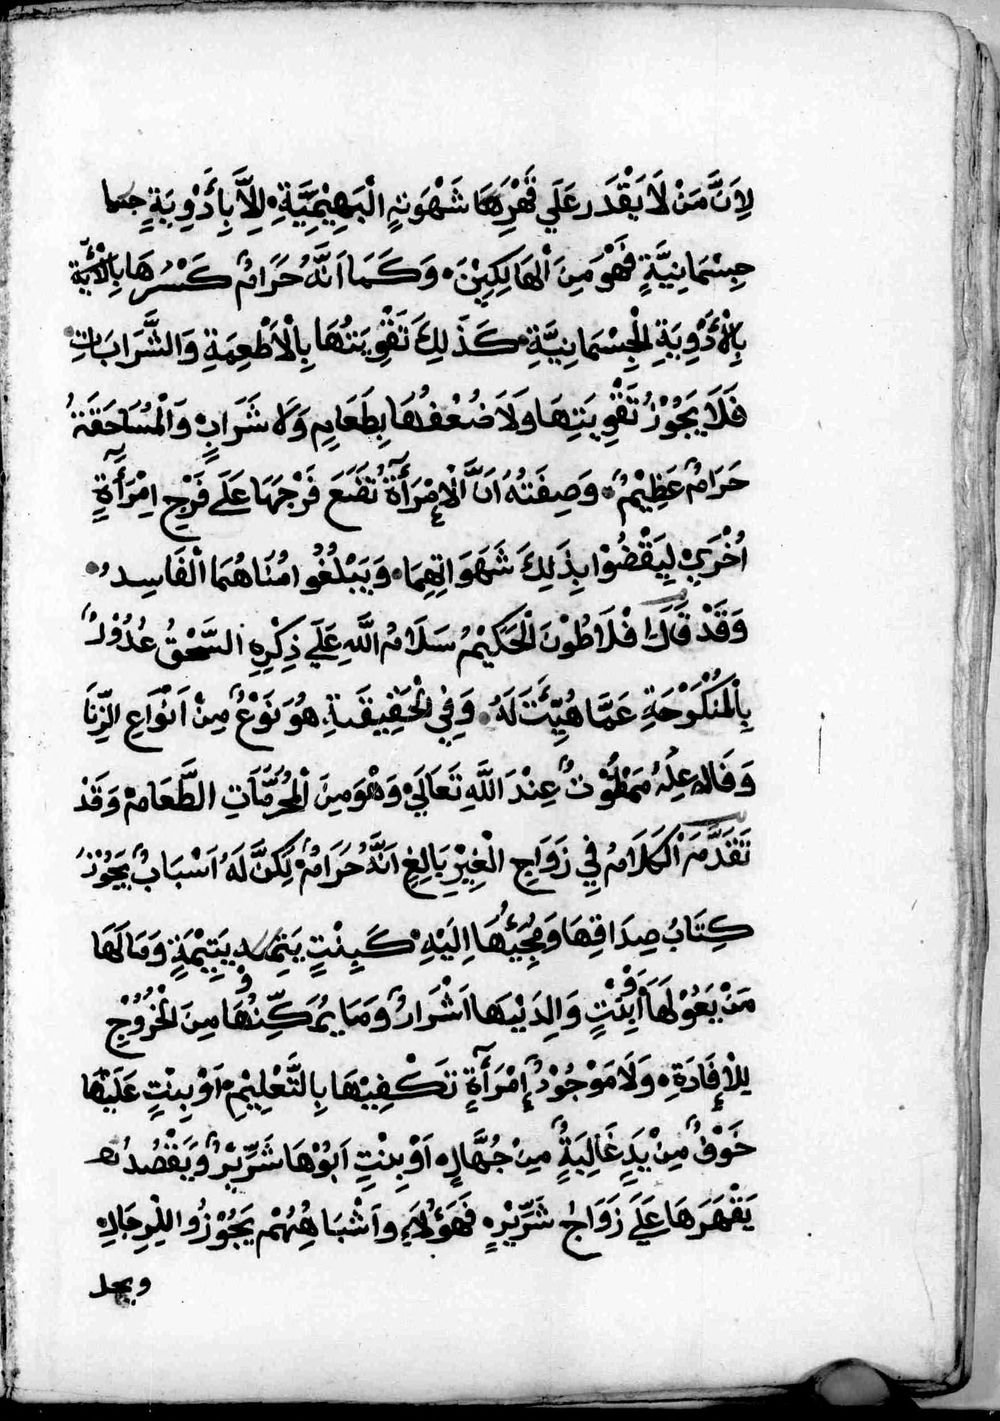 لِاَنَّ مَنْ لَا يَقْدَر عَلَي قَهْرِهَا شَهْوَتهِ الْبَهِيْمِيَّةِ اِلاَّ بِأَدْوِيَةٍ
جِسْمَانِيَّةٍ فَهْوَ مِنَ الْهَالِكِيْنَ وَكَمَا اَنَّهُ حَرَامٌ كَسْرُهَا
بِالْأَدْوِيَةِ الْجِسْمَانِيَّةِ كَذَلِكَ تَقْوِيَتُهَا بِالْاَطْعِمَةِ وَالشَّرَابَاتِ
فَلَا يَجُوْزُ تَقْوِيَتِهَا وَلَا ضُعْفُهَا بِطَعَامٍ وَلَا شَرَابٍ وَالْمُسَاحَقَةُ
حَرَامٌ عَظِيْمٌ وَصِفَتُهُ اَنَّ الْاِمْرَأَةَ تُضَعَ فَرْجَهَا عَلَي فَرْجِ اِمْرَأَةٍ
اُخْرَي لِيَقْضُوْا بِذَلِكَ شَهَوَاتِهِمَا وَيَبْلُغُوا مُنَاهُمَا الْفَاسِدُ
وَقَدْ قَالَ فْلَاطُوْنَ الْحَكِيْمُ سَلَامُ اللَّهِ عَلَي ذِكْرِهِ السَّحْقُ عُدُوْلٌ
بِالْمَنْكُوْحَةِ عَمَّا هُيِّئَتْ لَهُ وَفِي الْحَقِيْقَةِ هُوَ نَوْعٌ مِنْ اَنْوَاعِ الزِّنَا
وَفَاعِلِهُ مَمْقُوْتٌ عِنْدَ اللَّهِ تَعَالَي وَهْوَ مِنَ الْمُحَرَّمَاتِ الطَّعَامْ وَقَدْ
تَقَدَّمَ الْكَلَامُ فِي زَوَاجِ الْغِيْرِ بَالِغِ اَنَّهُ حَرَامٌ لَكِنَّ لَهُ اَسْبَابٌ يَجُوْزُ
كِتَابُ صِدَاقِهَا وَمَجِيْئُهَا اِلَيْهِ كَبِنْتٍ يَتِيْمَةٍ وَمَا لَهَا
مَنْ يَعُوْلَهَا اَوْ بِنْتٍ وَالِدَيْهَا اَشْرَارٌ وَمَا يُمَكِّنُوْهَا مِنَ الْخُرُوْجِ
لِلْاِفَادَةِ وَلَا مَوْجُوْدٌ اِمْرَأَةٍ تَكْفِيْهَا بِالتَّعْلِيْمِ اَوْ بِنْتٍ عَلَيْهَا
خَوْفٌ مِنْ يَدٍ غَالِبَةٍ مِنْ جُهَّالٍ اَوْ بِنْتٍ اَبُوْهَا شَرِّيْرٌ وَيَقْصُدُ
يَقْهَرَهَا عَلَي زَوَاجْ شَرِّيْرٍ فَهَؤُلَاءِ وَاَشْبَاهُهُمْ يَجُوْزُ لِلرِجَالِ